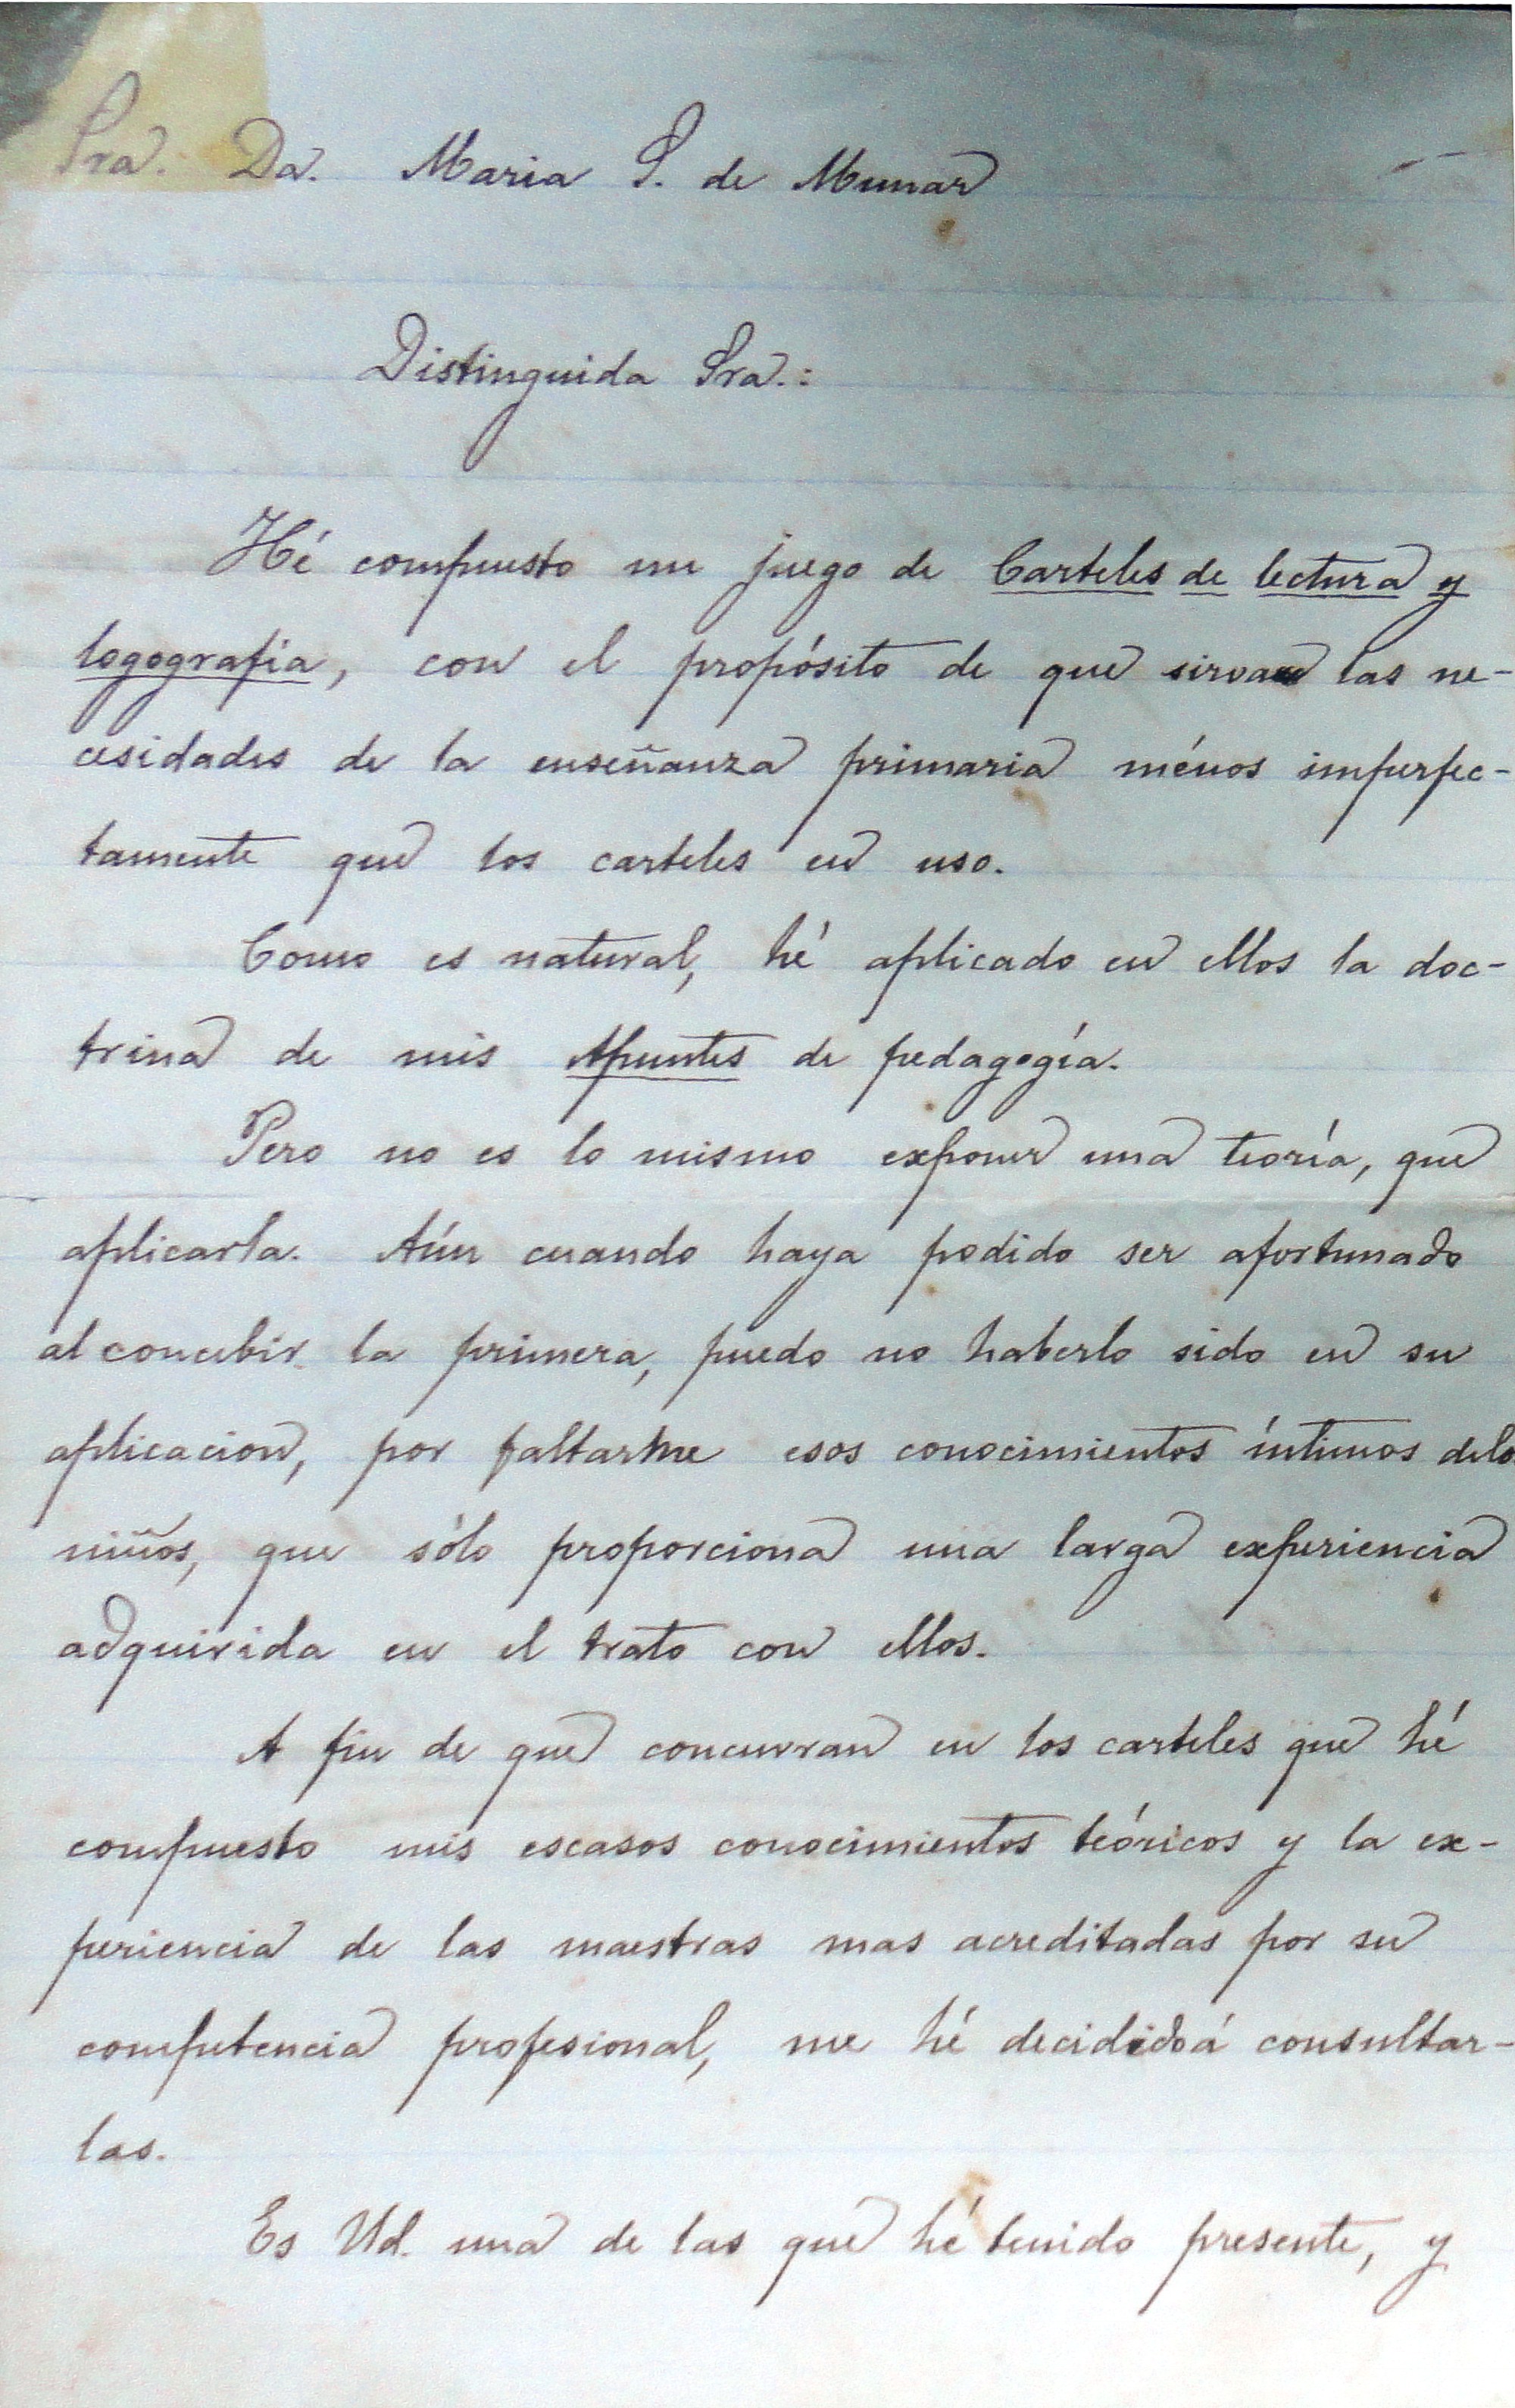 Sra. Da. Maria S. de Munar
Distinguida Sra.:
Hé compuesto un juego de Carteles de lectura y
logografia, con el propósito de que sirvan las ne-
cesidades de la enseñanza primaria ménos imperfec-
tamente que los carteles en uso.
Como es natural, hé aplicado en ellos la doc-
trina de mis Apuntes de pedagogía.
Pero no es lo mismo exponer una teoría, que
aplicarla. Aún cuando haya podido ser afortunado
al concebir la primera, puedo no haberlo sido en su
aplicacion, por faltarme esos conocimientos íntimos delo
niños, que sólo proporciona una larga experiencia
adquirida en el trato con ellos.
A fin de que concurran en los carteles que hé
compuesto mis escasos conocimientos teóricos y la ex-
periencia de las maestras mas acreditadas por su
competencia profesional, me hé decidido á consultar-
las.
Es Ud. una de las que hé tenido presente, y